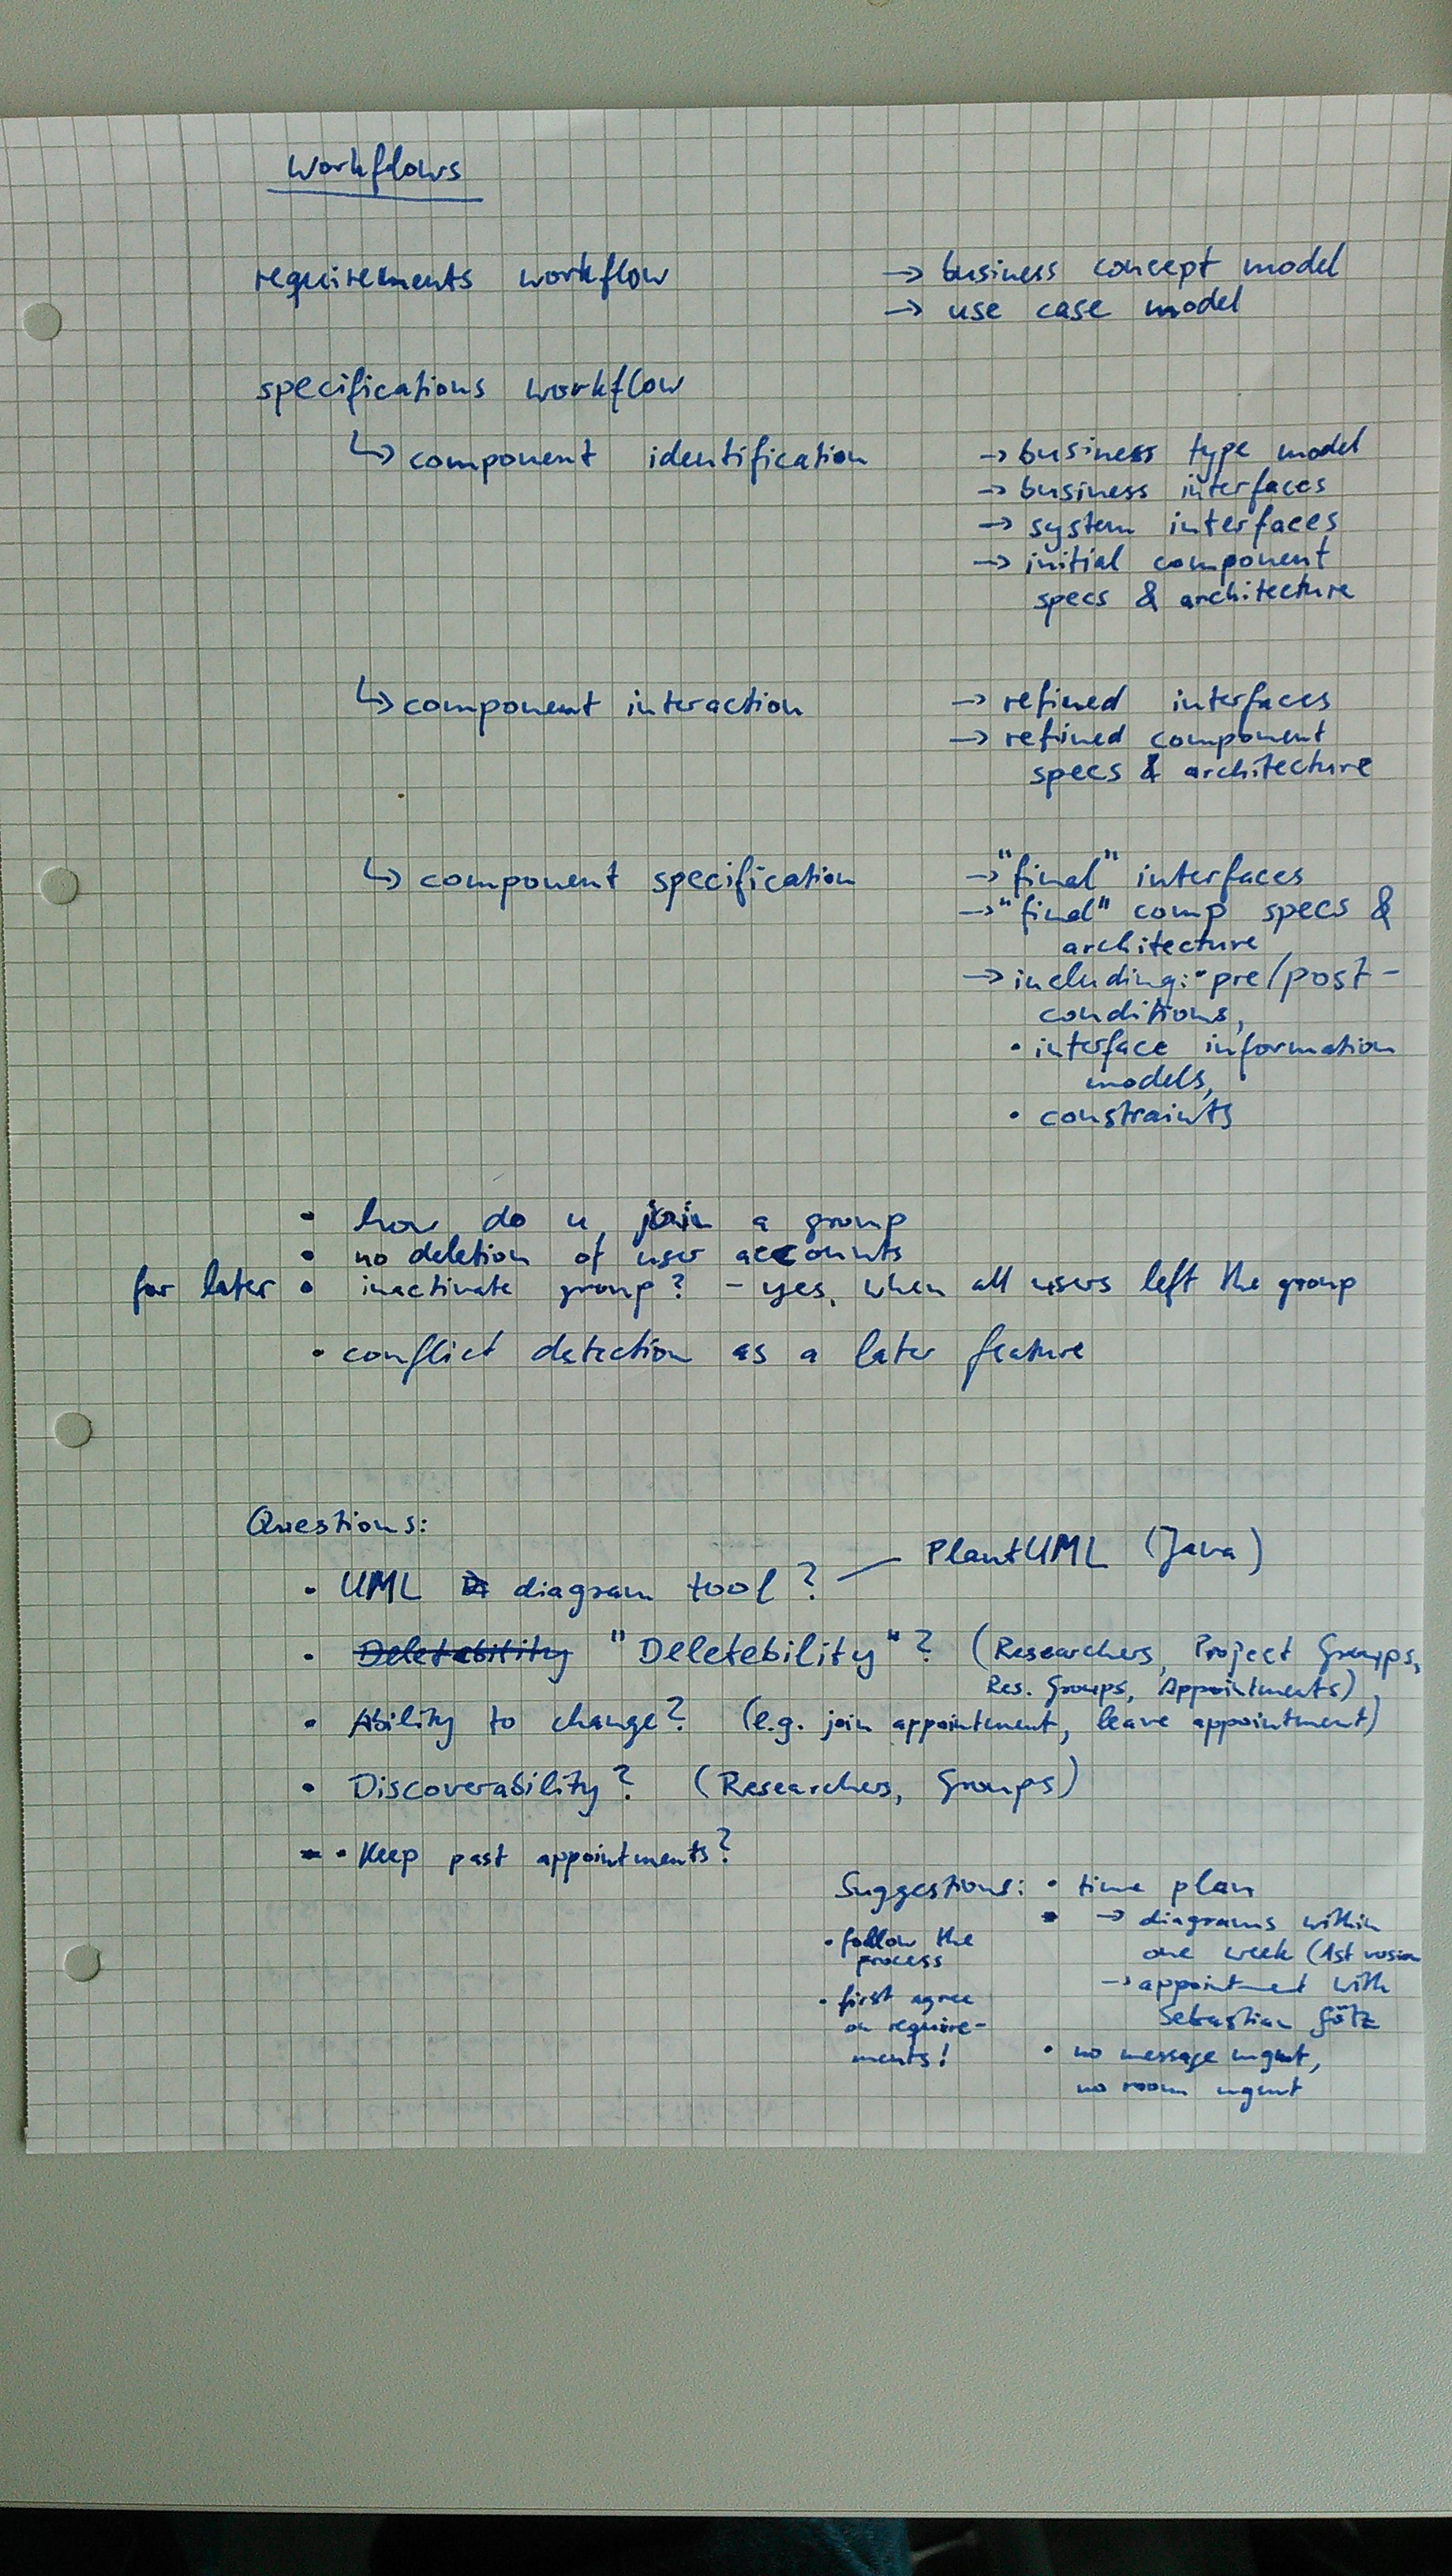 Workflows
requirements workflow → business concept model
→ use case model
specifications workflow
↳ component identification → business type model
→ business interfaces
→ system interfaces
→ initial component
specs & architecture
↳ component interaction → refined interfaces
→ refined component
specs & architecture
↳ component specification → "final" interfaces
→ "final" comp specs &
architecture
→ including: • pre/post-
conditions,
• interface information
models,
• constraints
• how do u join a group
• no deletion of user accounts
for later • inactivate group? - yes, when all users left the group
• conflict detection as a later feature
Questions:
• UML diagram tool? — PlantUML (Java)
• Deletability "Deletebility"? (Researchers, Project Groups,
Res. Groups, Appointments)
• Ability to change? (e.g. join appointment, leave appointment)
• Discoverability? (Researchers, Groups)
• Keep past appointments?
Suggestions: • time plan
→ diagrams within
one week (1st
→ appointment with
Sebastian Götz
• no message mgmt,
no room mgmt
• follow the
process
• first agree
on require-
ments!